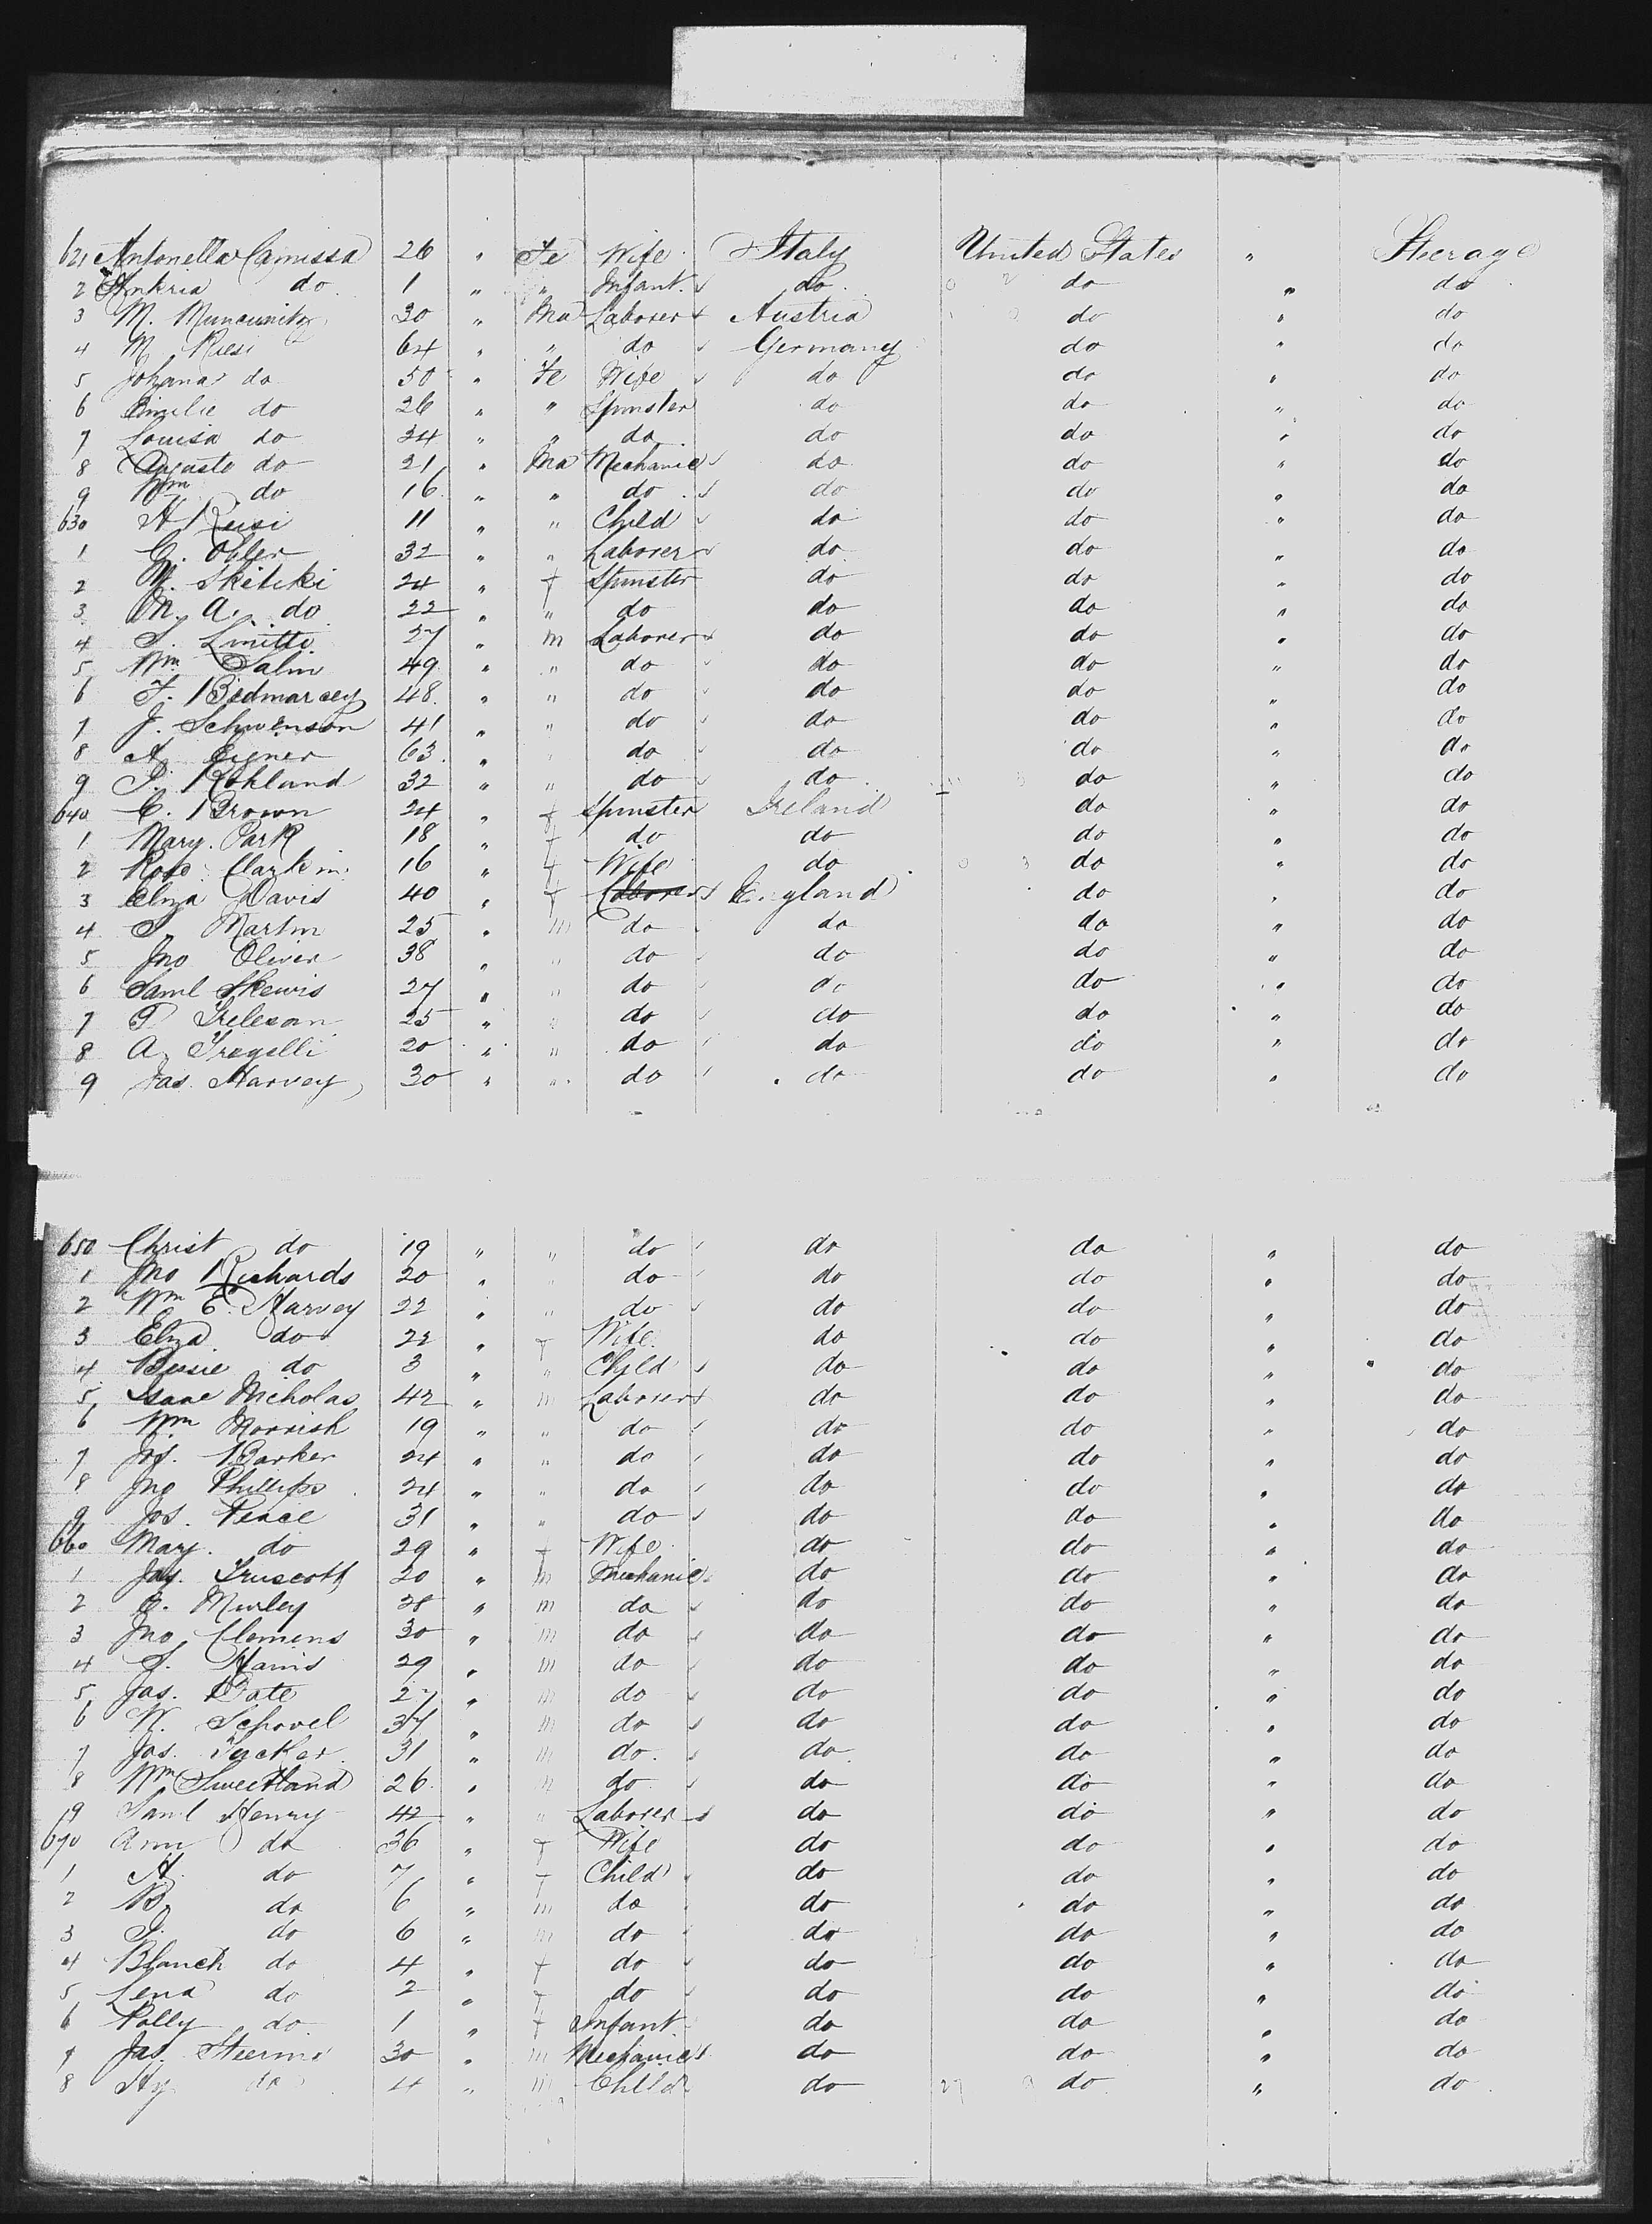 621 Antonella Camissa 26 " Fe Wife Italy United States " Steerage
2 do 1 " " Infant do do " do
3 M. 30 " Ma Laborer Austria do " do
4 M 64 " " do Germany do " do
5 Johana do 50 " Fe Wife do do " do
6 Emilie do 26 " " Spinster do do " do
7 Louisa do 24 " " do do do " do
8 Aguste do 21 " Ma Mechanic do do " do
9 Wm do 16 " " do do do " do
630 A Reisi 11 " " Child do do " do
1 C. Obler 32 " " Laborer do do " do
2 M. Skiliki 24 " f Spinster do do " do
3 M. A. do 22 " " do do do " do
4 S. 27 " m Laborer do do " do
5 Wm Salm 49 " " do do do " do
6 F. Bidmarcey 48 " " do do do " do
7 J. Schwenson 41 " " do do do " do
8 A. Eigner 63 " " do do do " do
9 P. Rohland 32 " " do do do " do
640 C. Brown 24 " f Spinster Ireland do " do
1 Mary Park 18 " f do do do " do
2 Rose Clarkin 16 " f Wife do do " do
3 Eliza Davis 40 " f Laborer England do " do
4 S. Martin 25 " m do do do " do
5 Jno Oliver 38 " " do do do " do
6 Saml Skewis 27 " " do do do " do
7 T. Treleson 25 " " do do do " do
8 A. Tregelli 20 " " do do do " do
9 Jas. Harvey 30 " " do do do " do
650 Christ do 19 " " do do do " do
1 Jno Richards 20 " " do do do " do
2 Wm E. Harvey 22 " " do do do " do
3 Eliza do 22 " f Wife do do " do
4 Bessie do 3 " " Child do do " do
5 Isaac Nicholas 42 " m Laborer do do " do
6 Wm Morrish 19 " " do do do " do
7 Jos. Barker 24 " " do do do " do
8 Jno Phillips 24 " " do do do " do
9 Jos. Pearce 31 " " do do do " do
660 Mary do 29 " f Wife do do " do
1 Jas. Truscott 20 " m Mechanic do do " do
2 E. Murley 28 " m do do do " do
3 Jno Clemens 30 " m do do do " do
4 S. Harris 29 " m do do do " do
5 Jas. Date 27 " m do do do " do
6 W. Schovel 37 " m do do do " do
7 Jas. Tucker 31 " m do do do " do
8 Wm Sweetland 26 " m do do do " do
9 Saml Henry 42 " " Laborer do do " do
670 Ann do 36 " f Wife do do " do
1 A. do 7 " f Child do do " do
2 B. do 6 " m do do do " do
3 S. do 6 " m do do do " do
4 Blanch do 4 " f do do do " do
5 Lena do 2 " f do do do " do
6 Polly do 1 " f Infant do do " do
7 Jas. 30 " m Mechanic do do " do
8 Hy do 4 " m Child do do " do